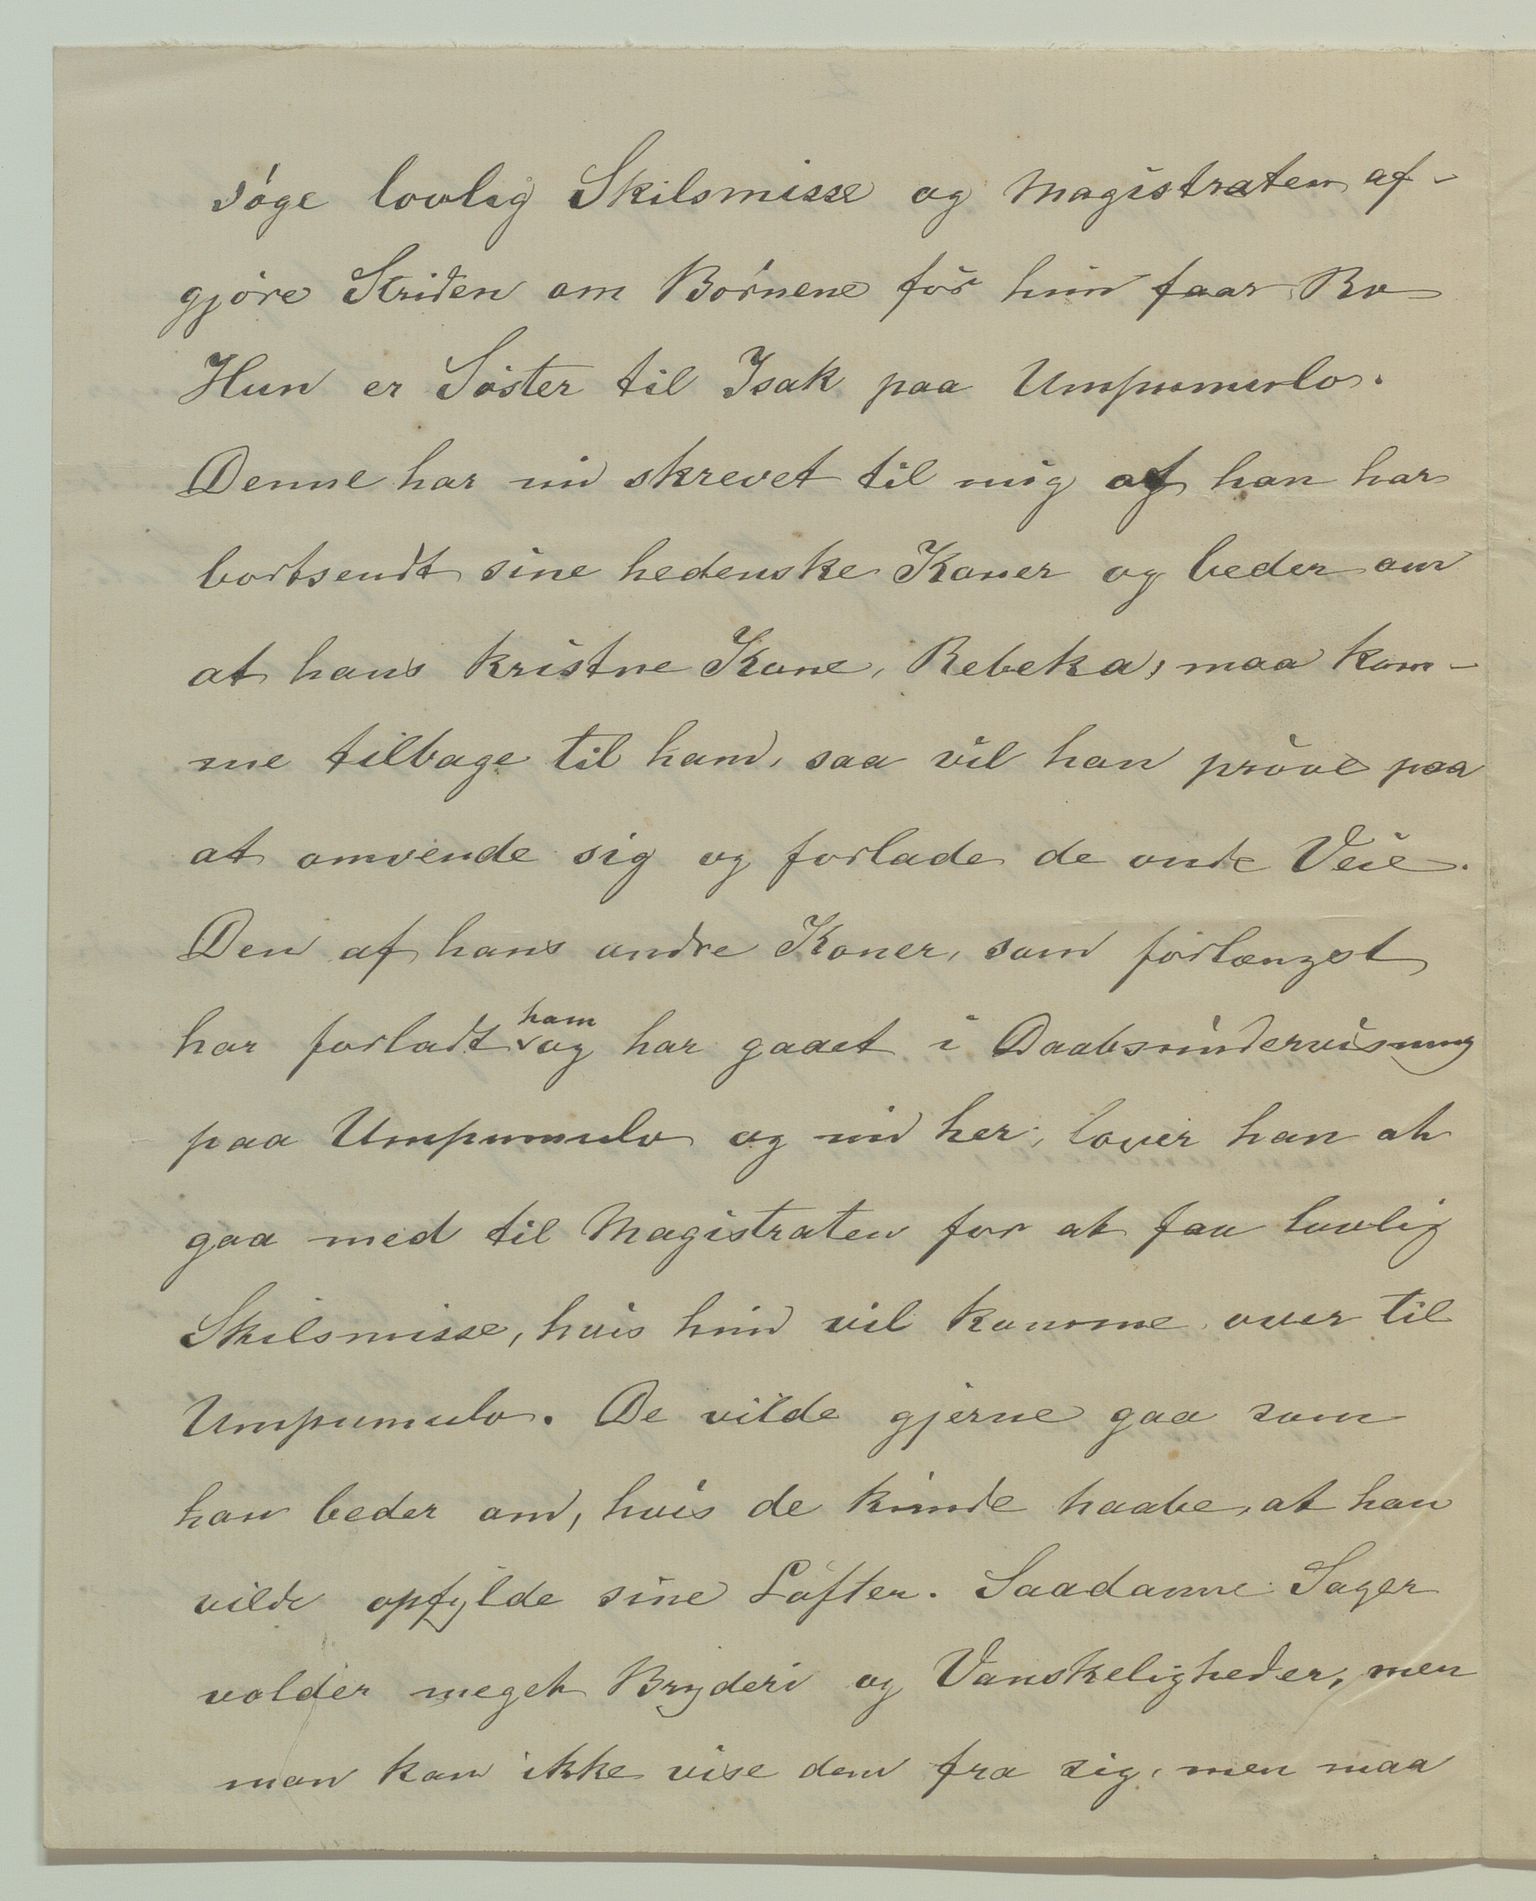 søge lovlig Skilsmisse og Magistraten af-
gjøre Striden om Børnene før hun faar Ro
Hun er Søster til Isak paa Umpumulo.
Denne har nu skrevet til mig at han har
bortsendt sine hedenske Koner og beder om
at hans kristne Kone, Rebeka, maa kom-
me tilbage til ham, saa vil han prøve paa
at omvende sig og forlade de onde Veie.
Den af hans andre Koner, som forlængst
har forladt ham og har gaaet i Daabsundervisning
paa Umpumulo og nu her, lover han at
gaa med til Magistraten for at faa lovlig
Skilsmisse, hvis hun vil komme over til
Umpumulo. De vilde gjerne gaa som
han beder om, hvis de kunde haabe, at han
vilde opfylde sine Løfter. Saadanne Sager
volder meget Bryderi og Vanskeligheder, men
man kan ikke vise dem fra sig, men maa